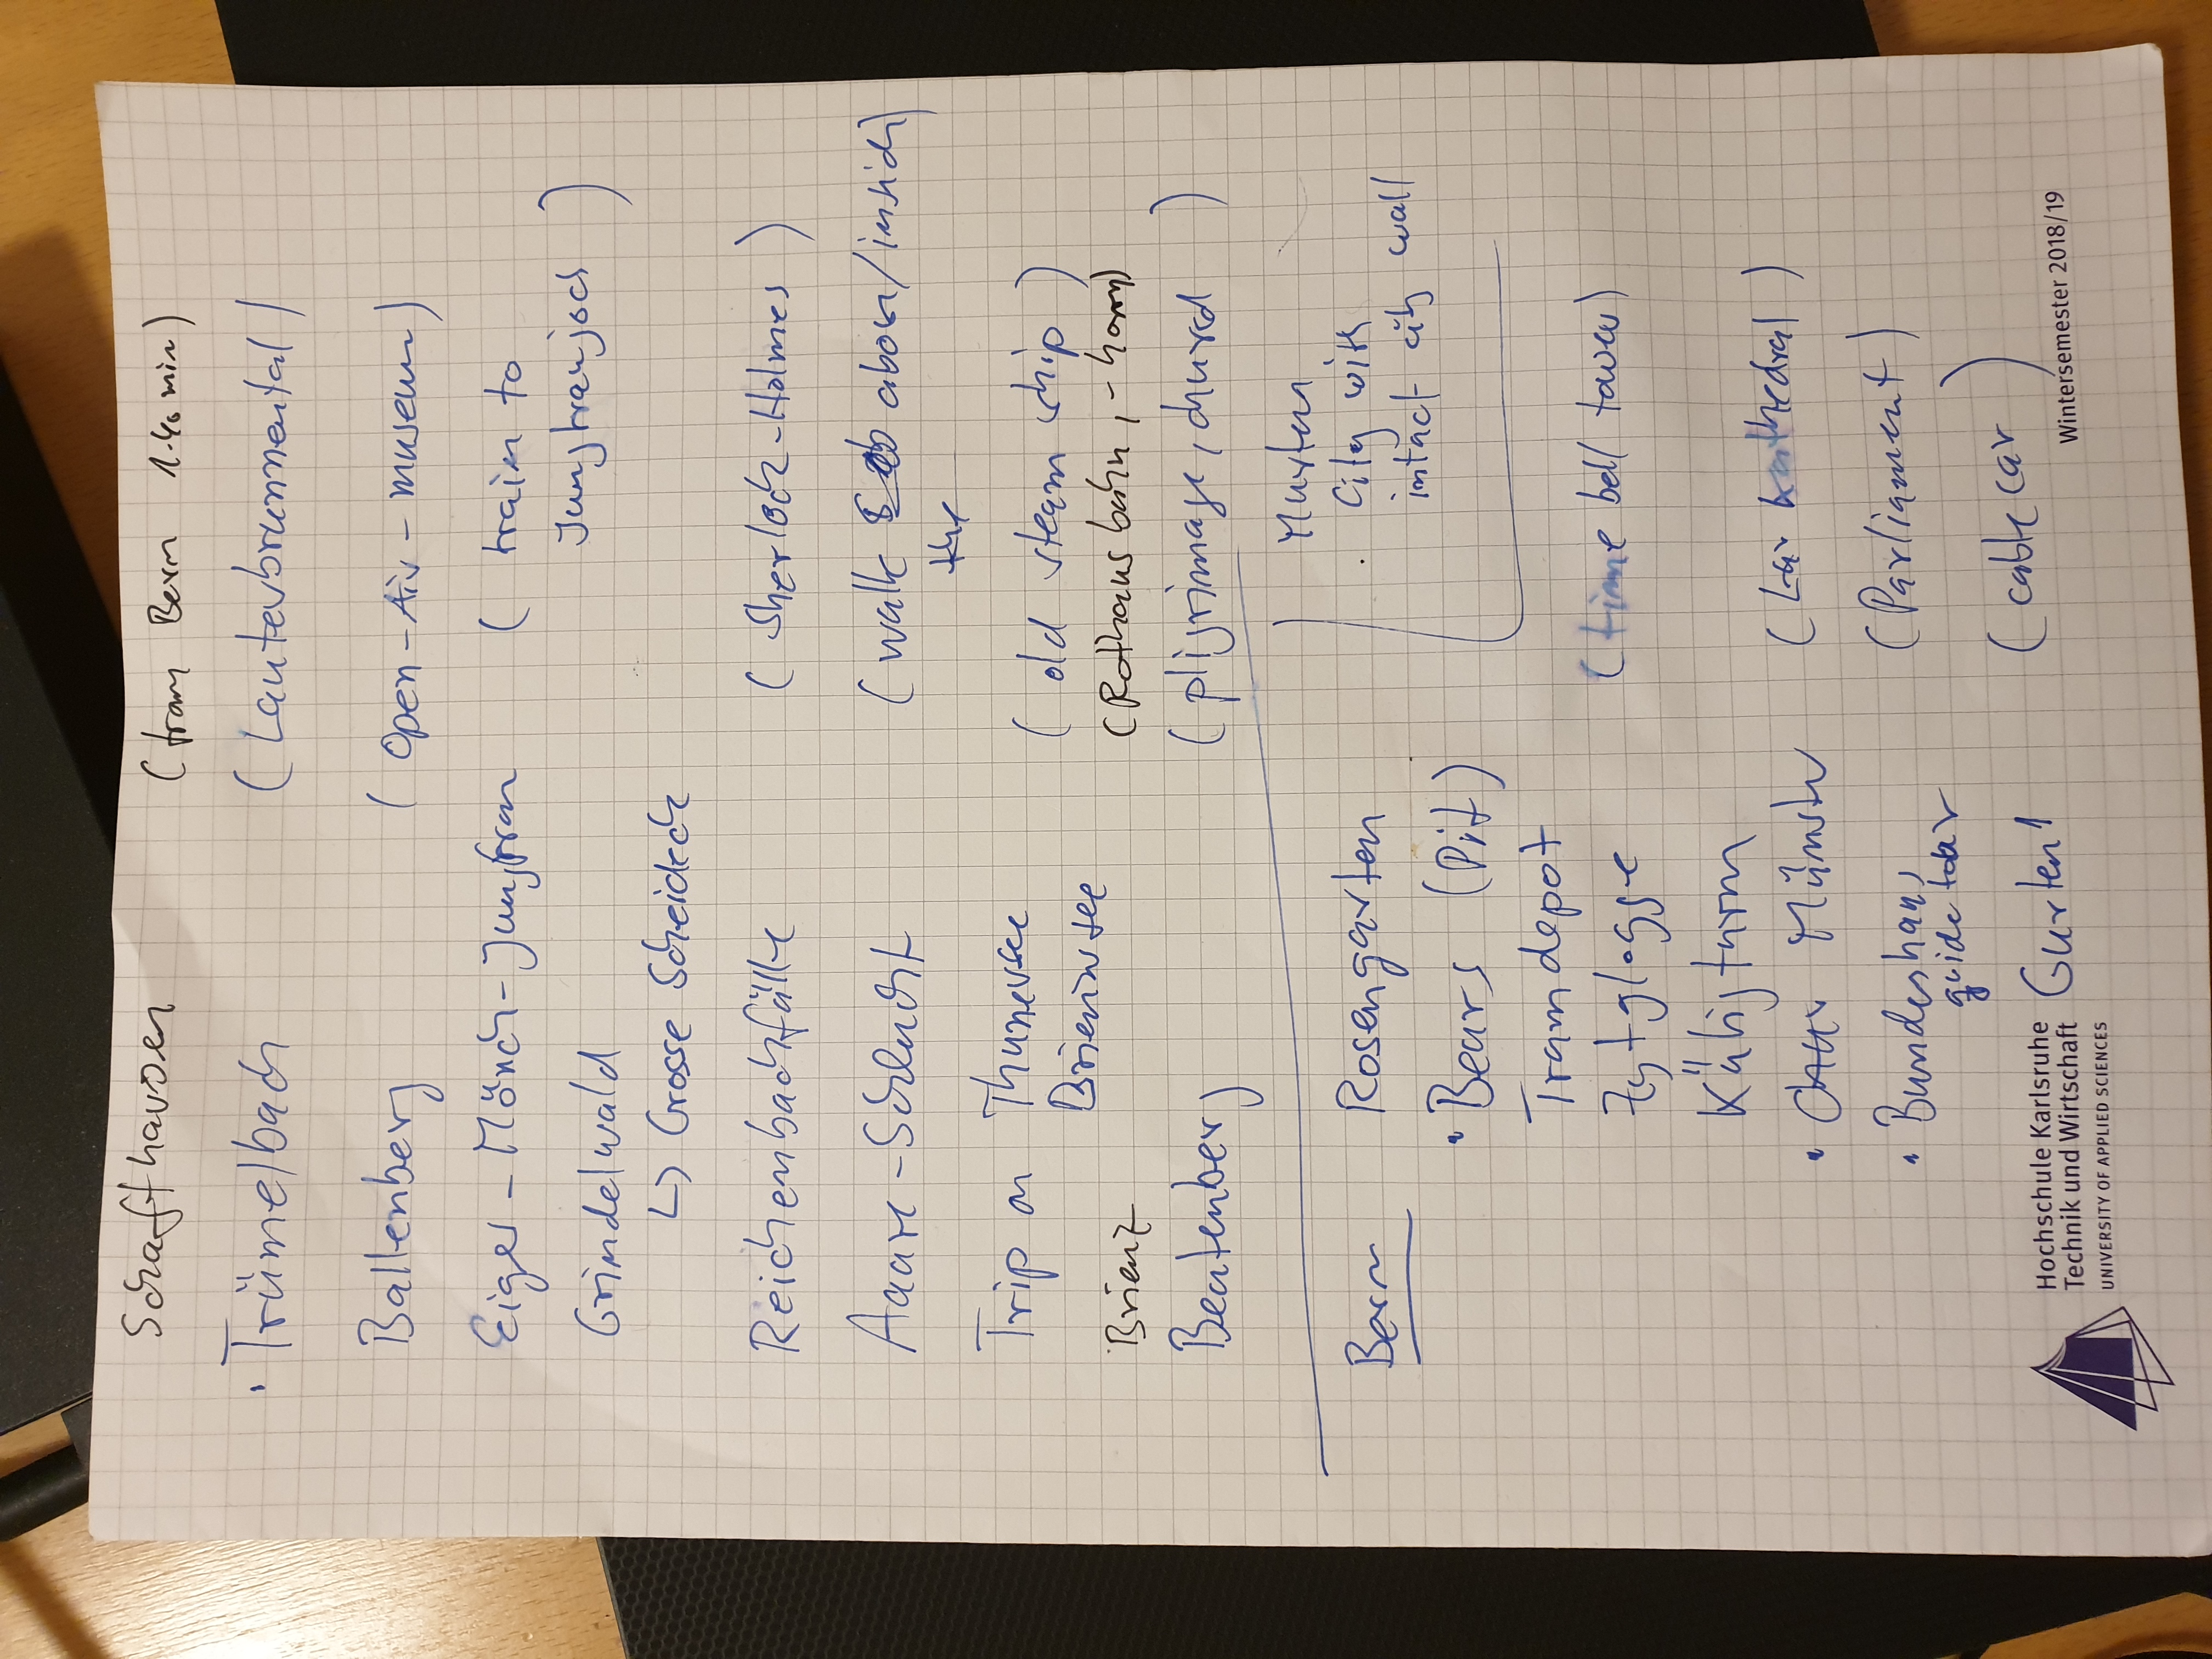 Schaffhausen (from Bern 1.40 min)
· Trümelbach (Lauterbrunnental)
Ballenberg (Open-Air-museum)
Eiger-Mönch-Jungfrau (train to
Jungfraujoch)
Grindelwald
↳ Grosse Scheideck
Reichenbachfälle (Sherlock-Holmes)
Aaare-Schlucht (walk above/inside)
the
Trip on Thunersee
(old steam ship)
Brienzersee
Brienz (Rothausbahn, -horn)
Beatenberg (pligrimage, church)
Murten
City with
intact city wall
Bern Rosengarten
· Bears (Pit)
Tramdepot
Zytglogge (time bell tower)
Käfigturm
· Münster (kathedral)
· Bundeshaus (Parliament)
guide tour
Gurten! (cable car)
Hochschule Karlsruhe
Technik und Wirtschaft
UNIVERSITY OF APPLIED SCIENCES
Wintersemester 2018/19